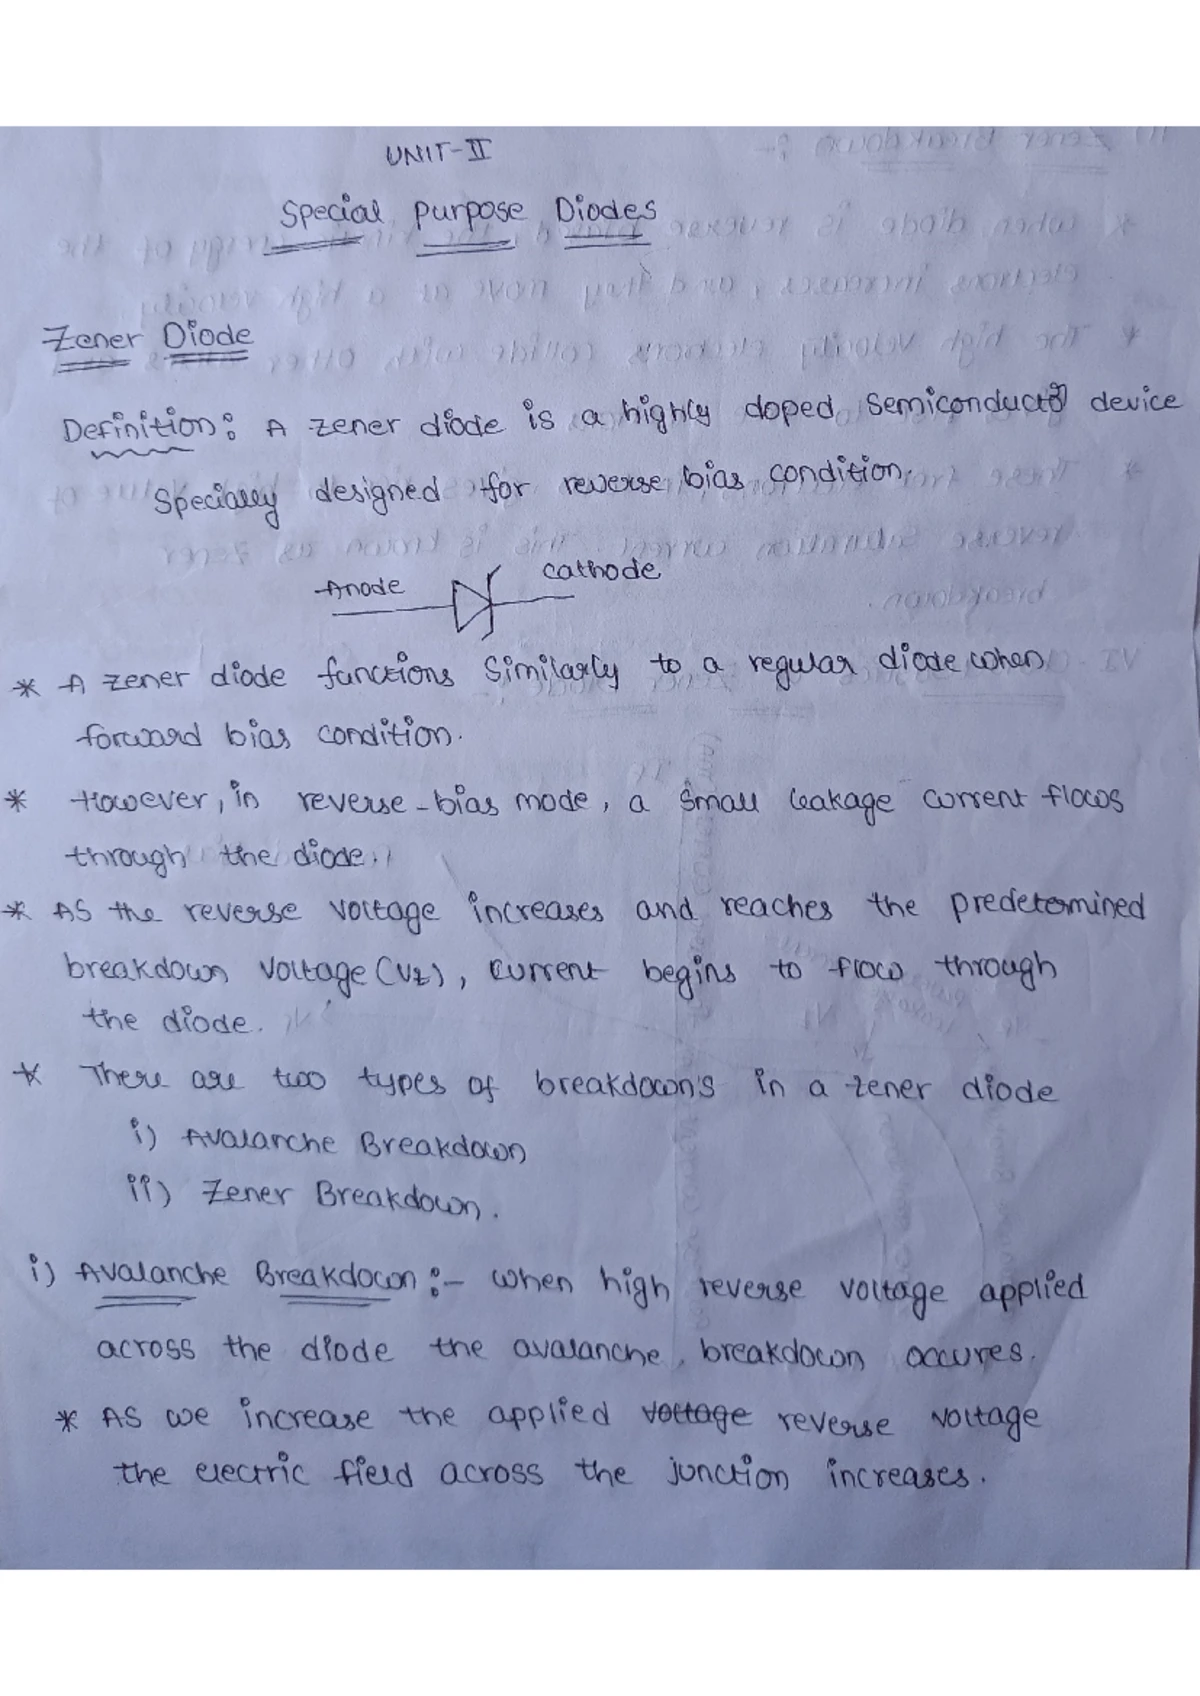 UNIT-II
Special Purpose Diodes
Zener Diode
Definition: A zener diode is a highly doped semiconductor device
Specially designed for reverse bias condition.
Anode cathode
* A zener diode functions Similarly to a regular diode when
forward bias condition.
* However, in reverse-bias mode, a small leakage current flows
through the diode.
* As the reverse voltage increases and reaches the predetermined
breakdown voltage (Vz), current begins to flow through
the diode.
* There are two types of breakdown's in a zener diode
i) Avalanche Breakdown
ii) Zener Breakdown.
i) Avalanche Breakdown :- when high reverse voltage applied
across the diode the avalanche breakdown occures.
* As we increase the applied voltage reverse voltage
the electric field across the junction increases.